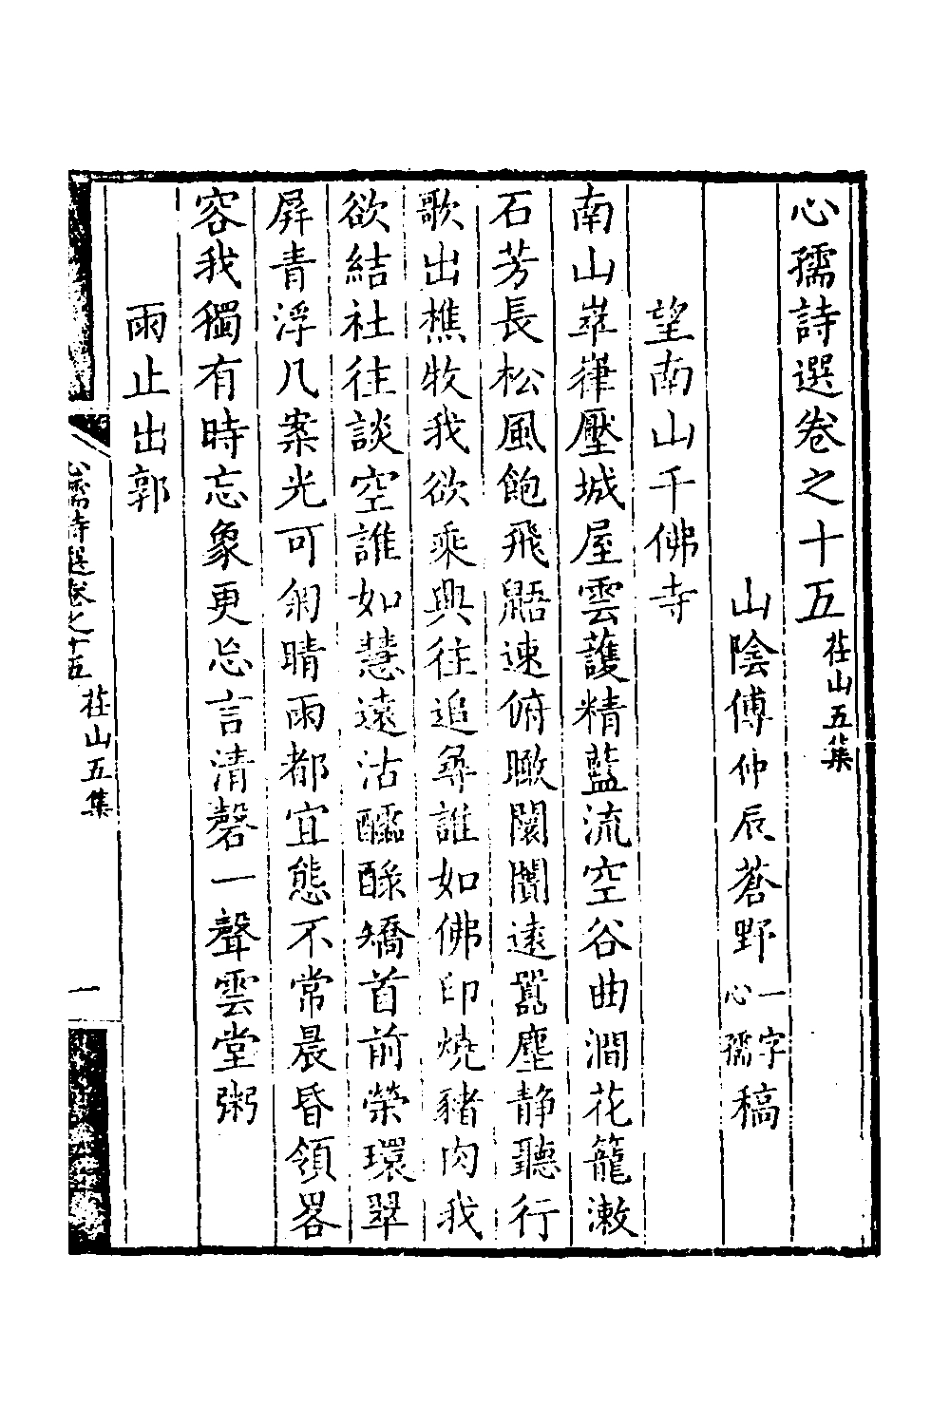 心孺詩選卷之十五 茌山五集
山陰傅仲辰蒼野 一字心孺 稿
望南山千佛寺
南山崒嵂壓城屋雲護精藍流空谷曲澗花籠漱
石芳長松風飽飛鼯速俯瞰闤闠遠囂塵静聽行
歌出樵牧我欲乘興往追尋誰如佛印燒豬肉我
欲結社往談空誰如慧遠沽醽醁矯首前榮環翠
屏青浮几案光可匊晴雨都宜態不常晨昏領畧
容我獨有時忘象更忘言清磬一聲雲堂粥
雨止出郭
心孺詩選卷之十五 茌山五集 一